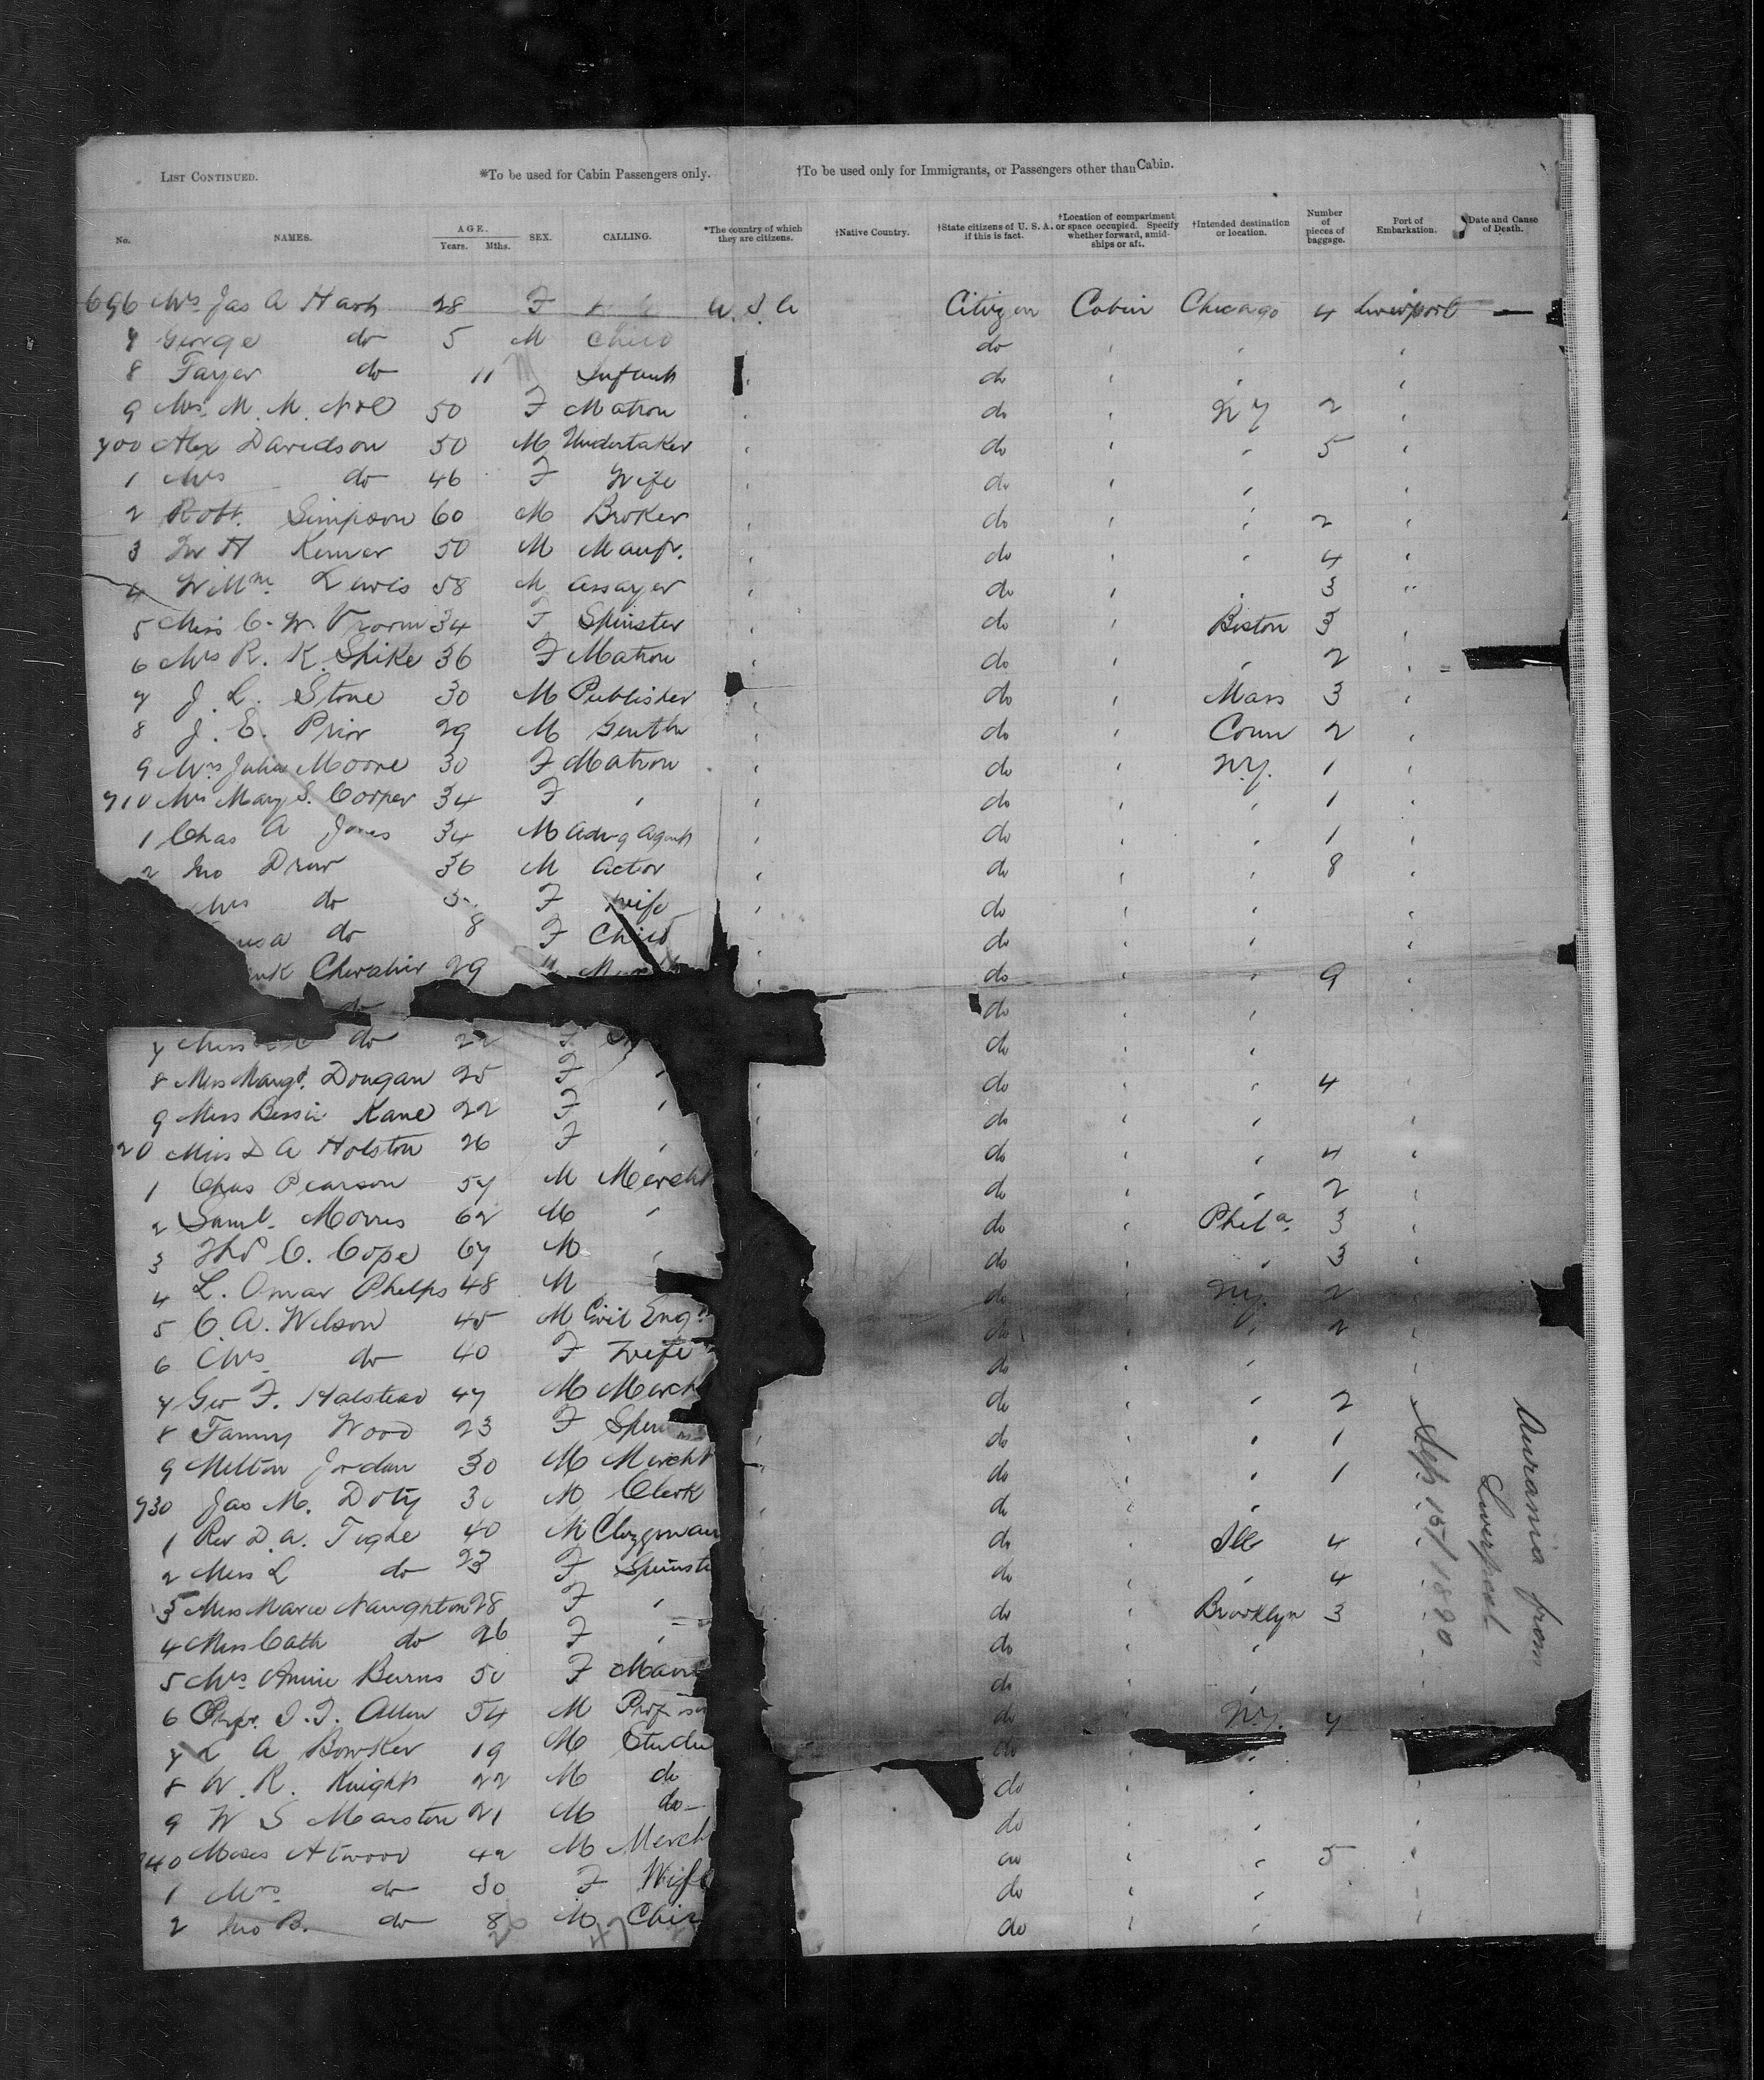 LIST CONTINUED. *To be used for Cabin Passengers only. †To be used only for Immigrants, or Passengers other than Cabin.
No. NAMES. AGE. Years. Mths. SEX. CALLING. *The country of which they are citizens. †Native Country. †State citizens of U. S. A. if this is fact. †Location of compartment or space occupied. Specify whether forward, amidships or aft. †Intended destination or location. Number of pieces of baggage. Port of Embarkation. Date and Cause of Death.
696 Mrs Jas A 28 F U.S.A Citizen Cabin Chicago 4 Liverpool
7 George do 5 M Child do
8 do 11 Infant do
9 Mrs. M. M. 50 F Matron do NY 2
700 Alex Davidson 50 M Undertaker do 5
1 Mrs do 46 F Wife do
2 Robt. Simpson 60 M Broker do 2
3 50 M Manfr. do 4
4 Willm. Lewis 58 M Assayer do 3
5 Miss C. W. Vroom 34 F Spinster do Boston 3
6 Mrs R. K. Spike 36 F Matron do 2
7 J. L. Stone 30 M Publisher do Mass 3
8 J. E. Prior 29 M Gentln do Conn 2
9 Mrs Julia Moore 30 F Matron do N.Y. 1
710 Mrs Mary S. 34 F do 1
1 Chas A Jones 34 M Advg Agent do 1
2 Jno Drew 36 M Actor do 8
Mrs do F Wife do
do 8 F Child do
Chevalier 29 do 9
do do
7 Miss do 22 F do
8 Miss Margt. Dougan 25 F do 4
9 Miss Bessie Kane 22 F do
20 Miss D A Holston 26 F do 4
1 Chas Pearson 57 M Mercht do 2
2 Saml. Morris 62 M do Phila. 3
3 Thos C. Cope 67 M do 3
4 L. Omar Phelps 48 M do N.Y. 2
5 C. A. Wilson 45 M Civil Engr do 2
6 Mrs do 40 F Wife do
7 Geo F. Halstead 47 M Merch do 2
8 Fanny Wood 23 F Spin do 1
9 Milton Jordan 30 M Mercht do 1
730 Jas M. Doty 30 M Clerk do
1 Rev D. A. Tighe 40 M Clergyman do Ill 4
2 Miss L do 23 F Spinste do 4
3 Miss Marie Naughton 28 F do Brooklyn 3
4 Miss Cath do 26 F do
5 Mrs Annie Burns 50 F do
6 Profr. Allen 54 M Professr do N.Y. 7
7 L A Bowker 19 M Studen do
8 W. R. Knight 22 M do do
9 W S Marston 21 M do do
740 Moses Atwood 42 M Merch do 5
1 Mrs do 30 F Wife do
2 Jno B. do 8 M Chil do
Aurania from
Liverpool
Sep 15/1890